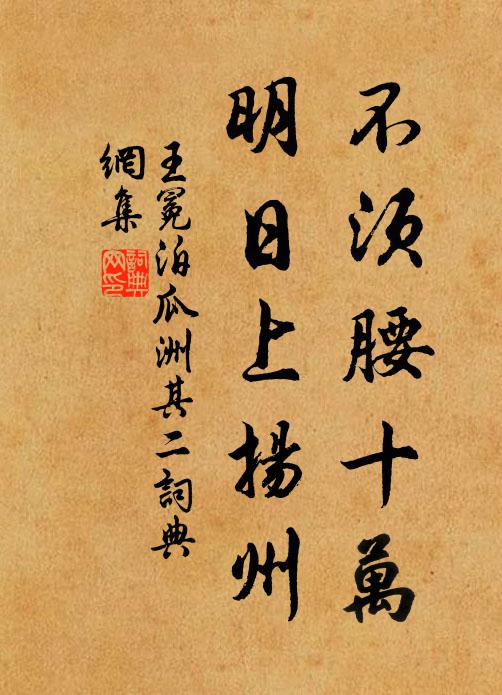 不須腰十萬
明日上揚州
王冕泊瓜洲其二詞典
網集
詞典
网印